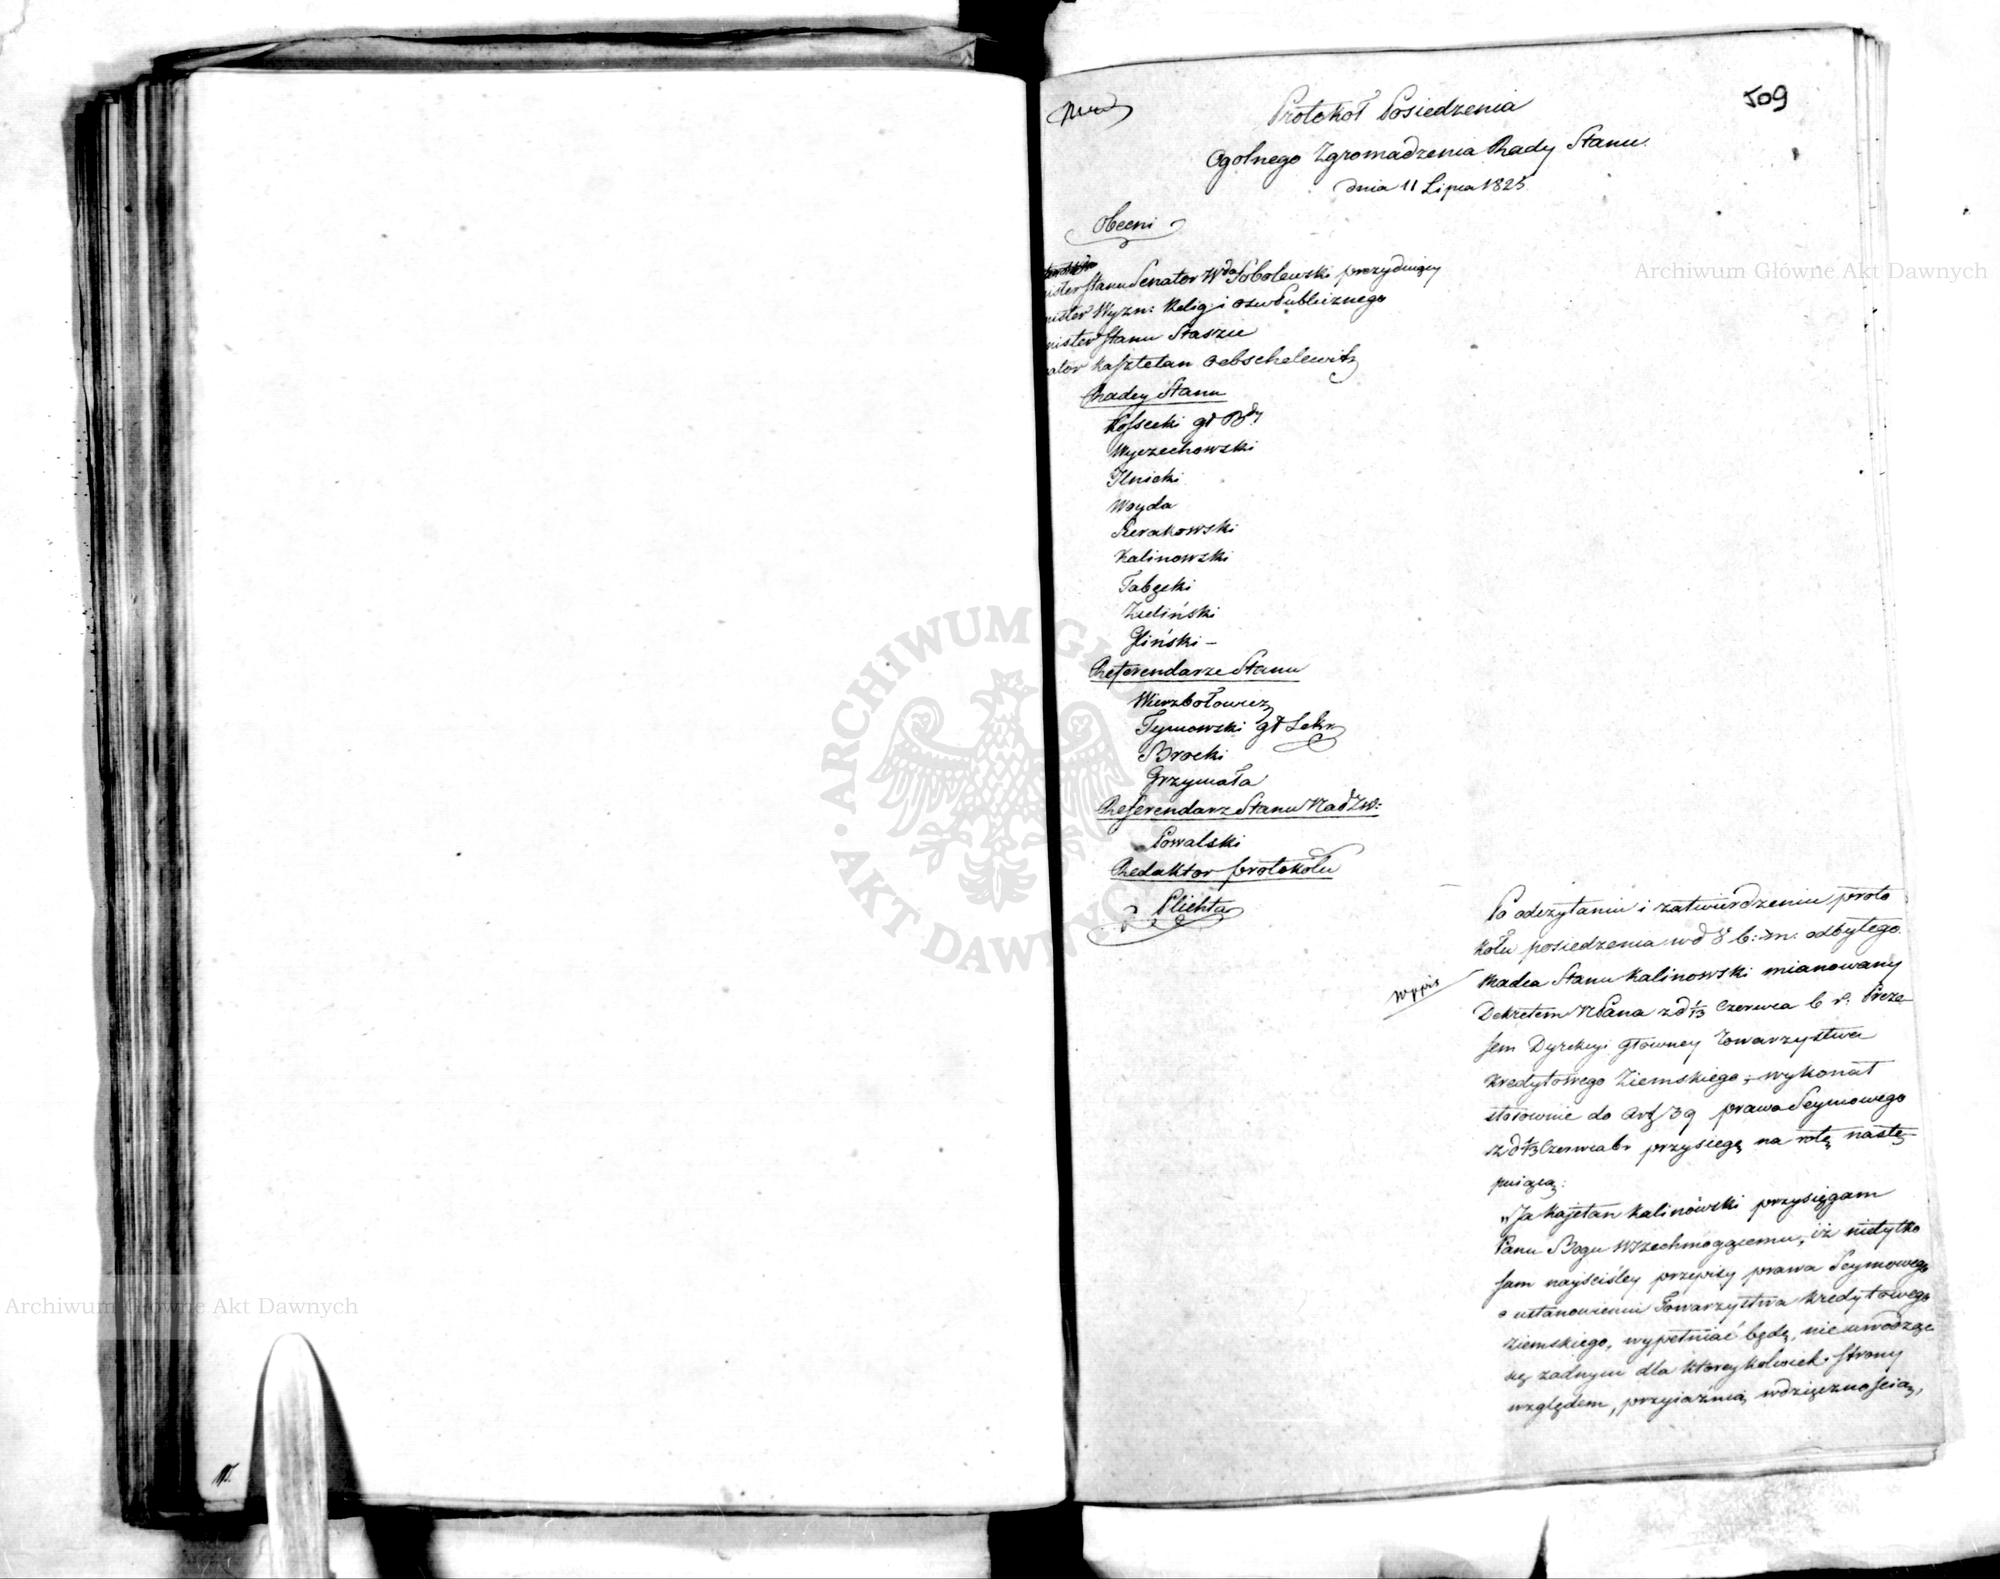 509
Protokoł Posiedzenia
Ogolnego Zgromadzenia Rady Stanu.
dnia 11 Lipca 1825.
Obecni
Stanu Senator Wda Sobolewski prezyduiący
Wyzn: Relig: i Ośw Publicznego
Stanu Staszic
Kasztelan Oebschelewitz
Radcy Stanu
Kossecki gł
Wyczechowski
Ilnicki
Woyda
Sierakowski
Kalinowski
Tabęcki
Zieliński
Gliński -
Referendarze Stanu
Wierzbołowicz
Tymowski gł Sekr
Brocki
Grzymała
Referendarz Stanu Nadzw:
Kowalski
Redaktor protokołu
Plichta
Po odczytaniu i zatwierdzeniu proto
kołu posiedzenia w d 8 b: m: odbytego.
wypis
Radca Stanu Kalinowski mianowany
Dekretem NPana z d 1/13 Czerwca b r: Preze-
sem Dyrekcyi Głowney Towarzystwa
Kredytowego Ziemskiego, wykonał
stosownie do Art 39 prawa Seymowego
z d 1/13 Czerwca br przysięgę na rotę nastę-
puiącą:
"Ja Kajetan Kalinowski przysięgam
Panu Bogu Wszechmogącemu, iż nietylko
sam nayściśley przepisy prawa Seymowego
o ustanowieniu Towarzystwa Kredytowego
Ziemskiego, wypełniać będę, nie uwodząc
się żadnym dla ktoreykolwiek strony
względem, przyiaźnią, wdzięcznością,
Archiwum Główne Akt Dawnych
Archiwum Główne Akt Dawnych
ARCHIWUM GŁÓWNE AKT DAWNYCH